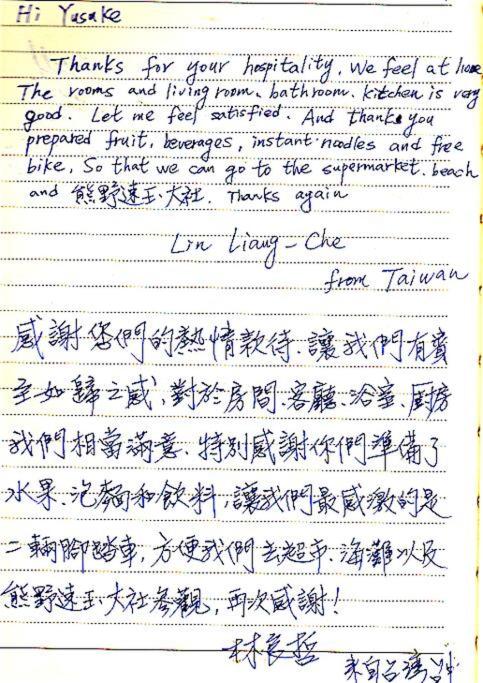 Hi Yusake
Thanks for your hospitality, We feel at home
The rooms and living room, bathroom, kitchen is very
good. Let me feel satisfied. And thank you
prepared fruit, beverages, instant noodles and free
bike, So that we can go to the supermarket, beach
and 熊野速玉大社. Thanks again
Lin Liang-Che
from Taiwan
感謝您們的熱情款待，讓我們有賓
至如歸之感，對於房間、客廳、浴室、厨房
我們相當滿意，特別感謝你們準備了
水果、泡麵和飲料，讓我們最感激的是
二輛腳踏車，方便我們去超市、海灘以及
熊野速玉大社參觀，再次感謝！
林良哲
來自台灣